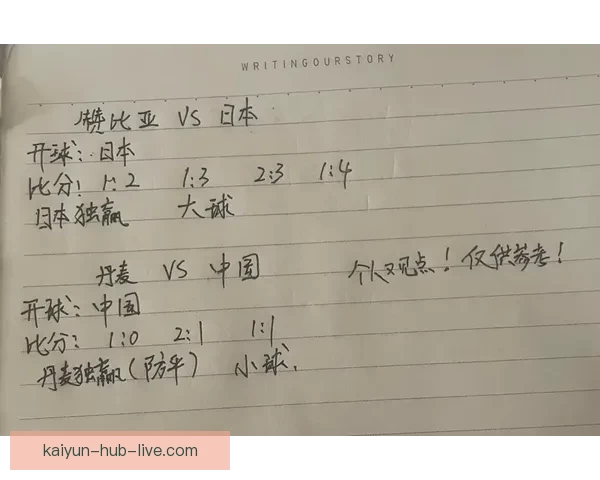 WRITINGOURSTORY
赞比亚 VS 日本
开球: 日本
比分: 1:2 1:3 2:3 1:4
日本独赢 大球
丹麦 VS 中国
个人观点! 仅供参考!
开球: 中国
比分: 1:0 2:1 1:1
丹麦独赢(防平) 小球.
kaiyun-hub-live.com